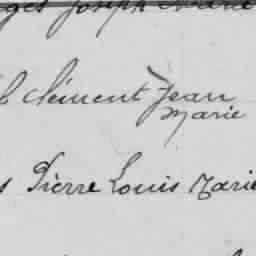 Joseph
Clément Jean
Marie
Pierre Louis Marie